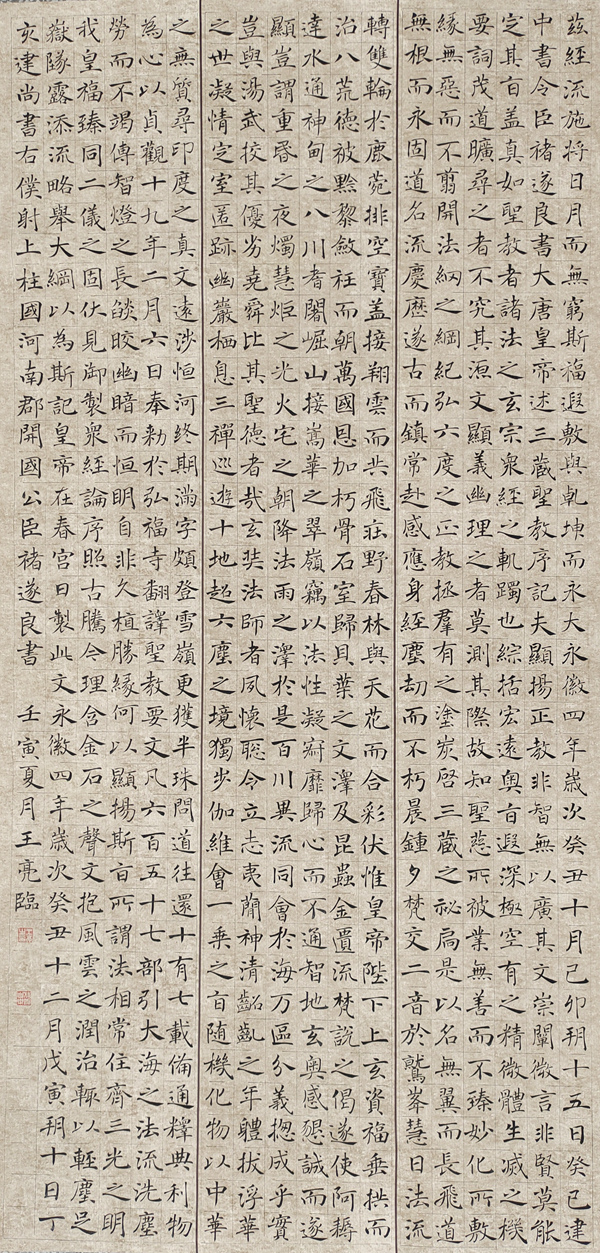 茲經流施將日月而無窮斯福遐敷與乹坤而永大永徽四年歲次癸丑十月己卯朔十五日癸巳建
中書令臣褚遂良書大唐皇帝述三藏聖教序記夫顯揚正教非智無以廣其文崇闡微言非賢莫能
定其旨盖真如聖教者諸法之玄宗衆經之軌躅也綜括宏遠奧旨遐深極空有之精微體生滅之機
要詞茂道曠尋之者不究其源文顯義幽理之者莫測其際故知聖慈所被業無善而不臻妙化所敷
緣無惡而不翦開法網之綱紀弘六度之正教拯羣有之塗炭啓三藏之祕扃是以名無翼而長飛道
無根而永固道名流慶歷遂古而鎮常赴感應身經塵劫而不朽晨鍾夕梵交二音於鷲峯慧日法流
轉雙輪於鹿菀排空寶盖接翔雲而共飛莊野春林與天花而合彩伏惟皇帝陛下上玄資福垂拱而
治八荒德被黔黎斂衽而朝萬國恩加朽骨石室歸貝葉之文澤及昆蟲金匱流梵說之偈遂使阿耨
達水通神甸之八川耆闍崛山接嵩華之翠嶺竊以法性凝寂靡歸心而不通智地玄奧感懇誠而遂
顯豈謂重昏之夜燭慧炬之光火宅之朝降法雨之澤於是百川異流同會於海万區分義揔成乎實
豈與湯武挍其優劣堯舜比其聖德者哉玄奘法師者夙懷聡令立志夷簡神清齠齔之年體拔浮華
之世凝情定室匿跡幽巖栖息三禪巡遊十地超六塵之境獨步伽維會一乘之旨隨機化物以中華
之無質尋印度之真文遠涉恒河終期滿字頻登雪嶺更獲半珠問道往還十有七載備通釋典利物
為心以貞觀十九年二月六日奉勑於弘福寺翻譯聖教要文凡六百五十七部引大海之法流洗塵
勞而不竭傳智燈之長焰皎幽暗而恒明自非久植勝緣何以顯揚斯旨所謂法相常住齊三光之明
我皇福臻同二儀之固伏見御製衆經論序照古騰今理含金石之聲文抱風雲之潤治輙以輕塵足
嶽墜露添流略舉大綱以為斯記皇帝在春宮日製此文永徽四年歲次癸丑十二月戊寅朔十日丁
亥建尚書右僕射上柱國河南郡開國公臣褚遂良書 壬寅夏月王亮臨